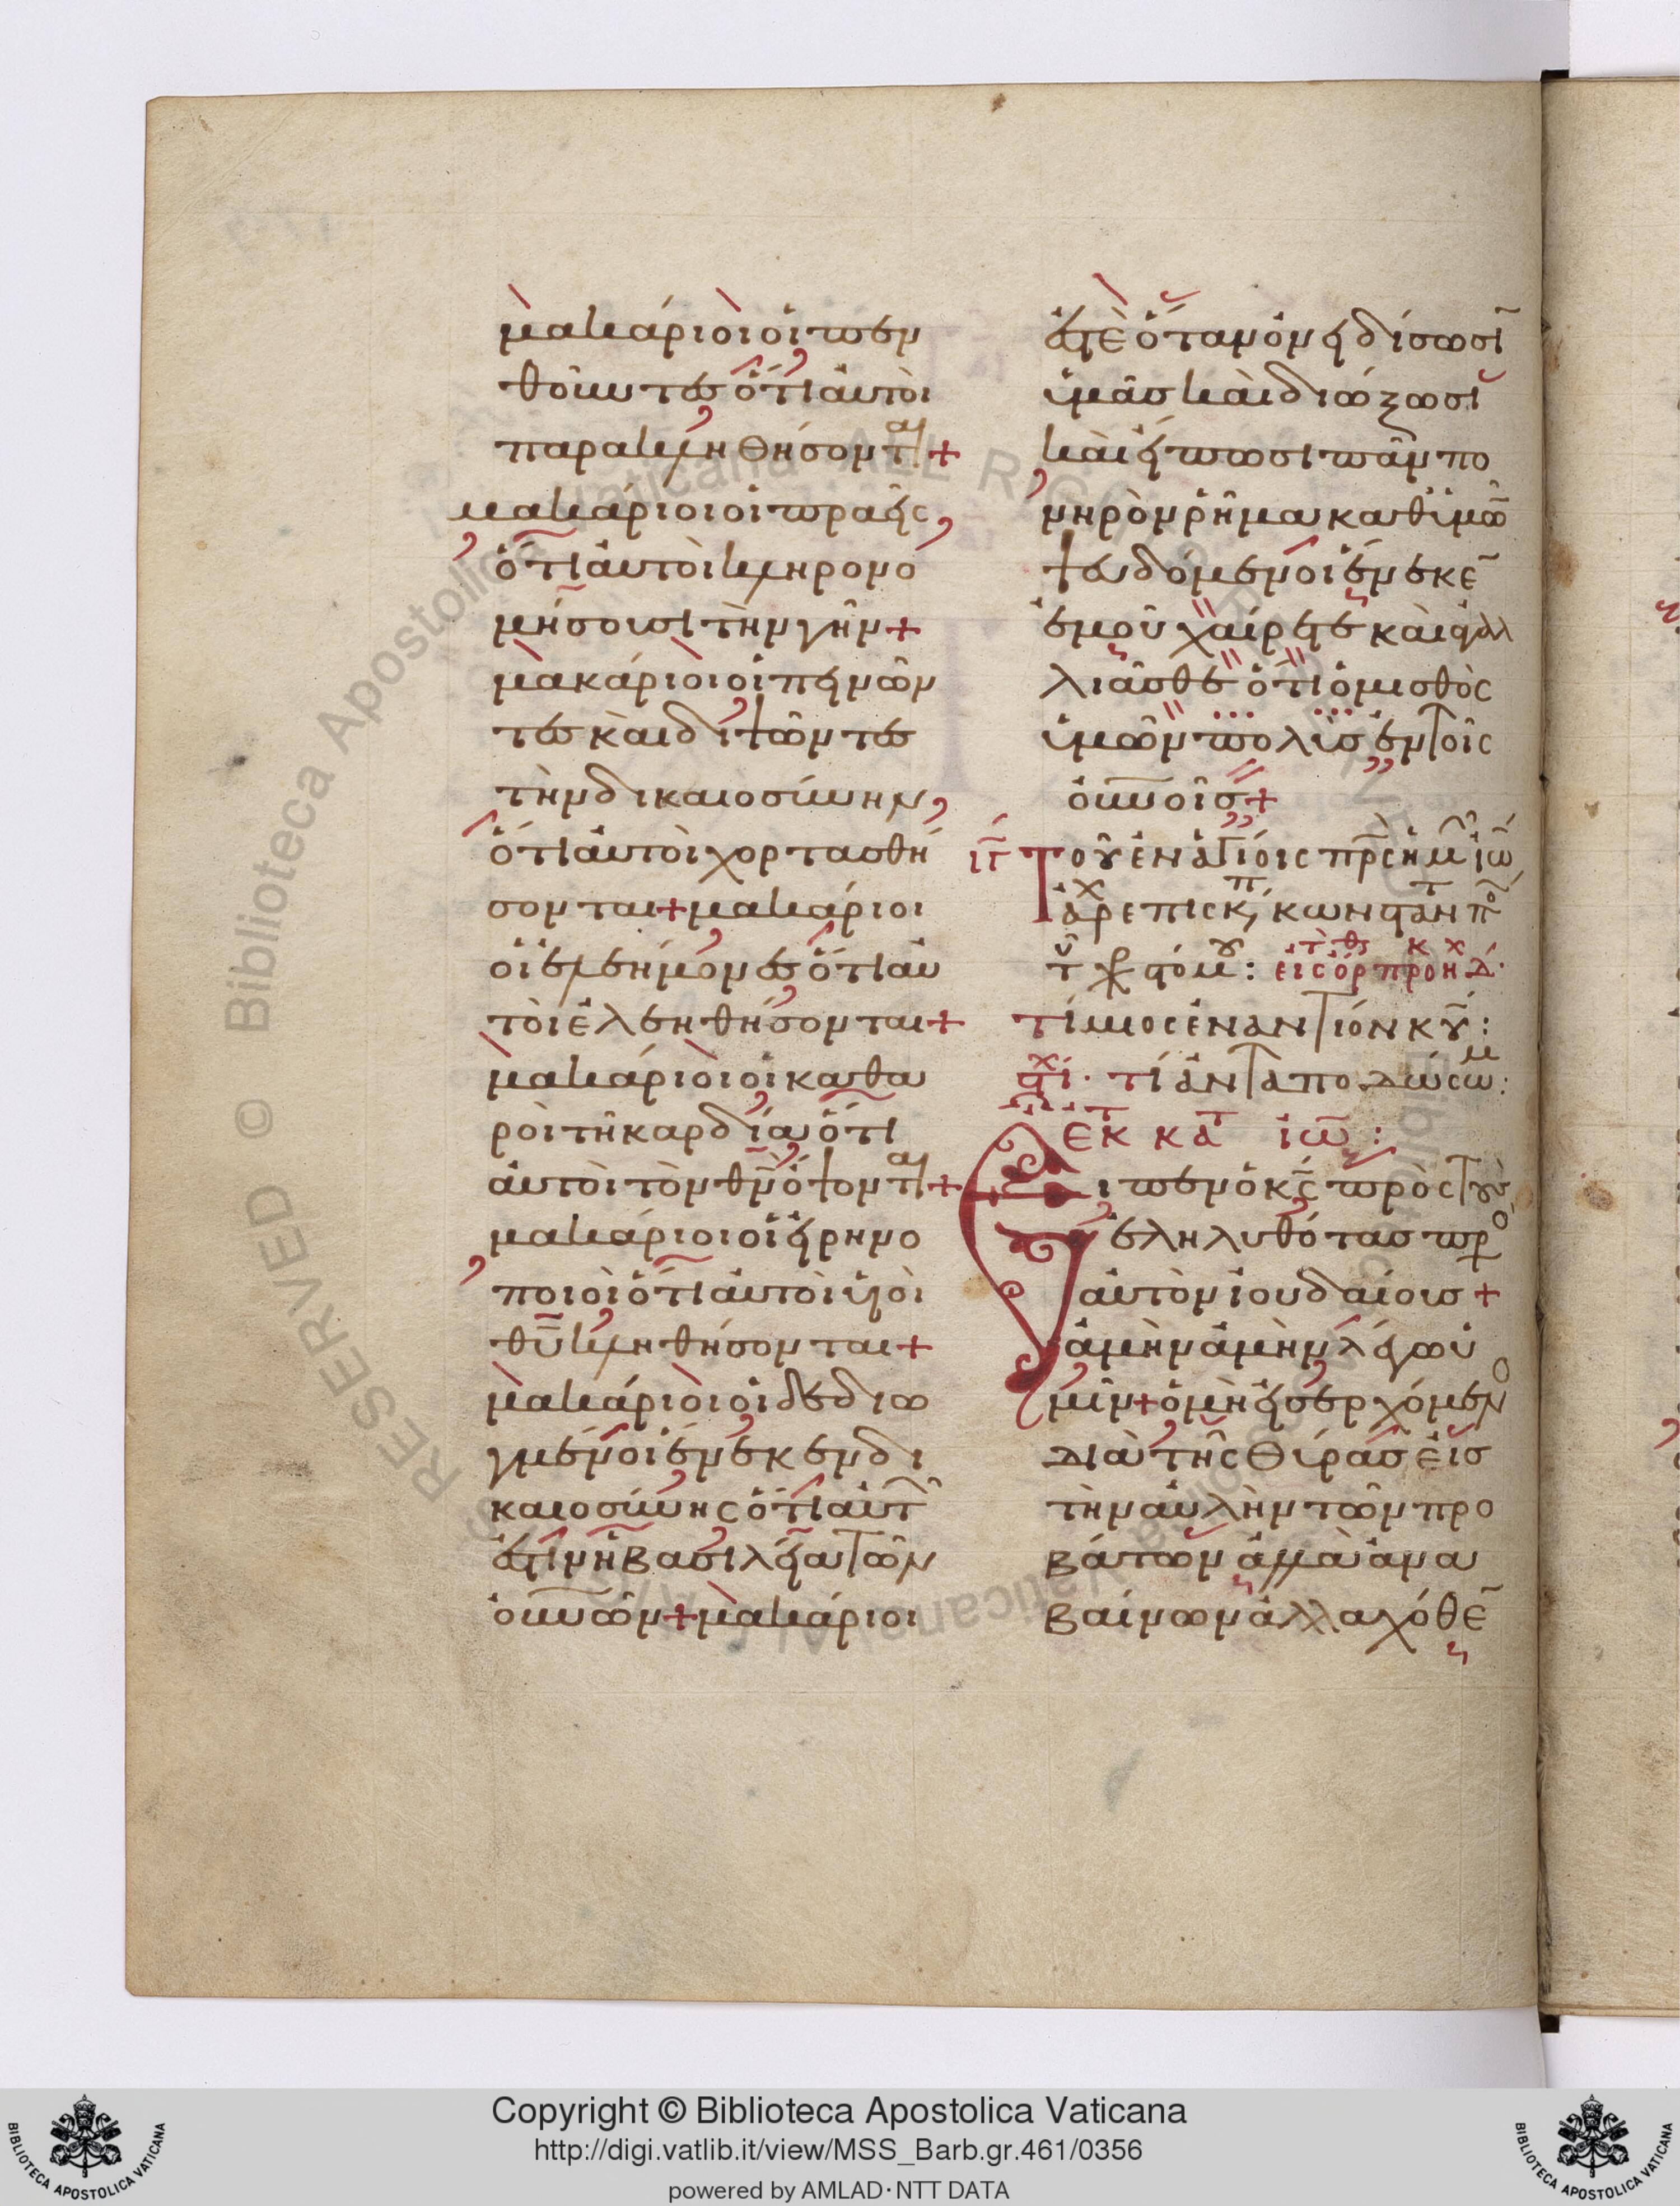 μακάριοι οἱ πεν
θοῦντες ὅτι αὐτοὶ
παρακληθήσονται +
μακάριοι οἱ πραεῖς,
ὅτι αὐτοὶ κληρονο
μήσουσι τὴν γῆν +
μακάριοι οἱ πεινῶν
τες καὶ διψῶντες
τὴν δικαιοσύνην,
ὅτι αὐτοὶ χορτασθή
σονται + μακάριοι
οἱ ἐλεήμονες ὅτι αὐ
τοὶ ἐλεηθήσονται +
μακάριοι οἱ καθα
ροὶ τῆ καρδία ὅτι
αὐτοὶ τὸν θν̄ ὄψονται +
μακάριοι οἱ εἰρηνο
ποιοὶ ὅτι αὐτοὶ υἱοὶ
θῡ κληθήσονται +
μακάριοι οἱ δεδιω
γμένοι ἕνεκεν δι
καιοσύνης ὅτι αὐτῶ
ἐστὶν ἡ βασιλεία τῶν
οὐνῶν + μακάριοι
ἐστὲ ὅταν ὀνειδίσωσῑ
ὑμᾶς καὶ διώξωσι
καὶ εἴπωσι πᾶν πο
νηρὸν ῥῆμα καθ ὑμῶ̄
ψευδόμενοι ἕνεκε̄
ἐμοῦ χαίρετε καὶ ἀγαλ
λιᾶσθε ὅτι ὁ μισθὸς
ὑμῶν πολὺς ἐν τοῖς
οὐνοῖς +
ιγ Τοῦ ἐν ἁγίοις πρς ἡμ ἰω
ἀρχεπισκ, κωνσταντ πόλ
τ χρ στομ : εἰς ὀρθ προκ ἦχ δ.
τίμιος ἐναντίον κῡ :
στιχ. τί ἀνταποδώσωμ :
ἐκ κατ ἰω :
Εἶπεν ὁ κς̄ πρὸς τοὺς
ἐληλυθότας πρὸ
αὐτὸν ἰουδαίους +
ἀμὴν ἀμὴν λέγω ὑ
μῖν + ὁ μὴ εἰσερχόμενο
διὰ τῆς θύρας εἰς
τὴν αὐλὴν τῶν προ
βάτων ἀλλὰ ἀνα
βαίνων ἀλλαχόθε̄
Copyright © Biblioteca Apostolica Vaticana
http://digi.vatlib.it/view/MSS_Barb.gr.461/0356
powered by AMLAD·NTT DATA